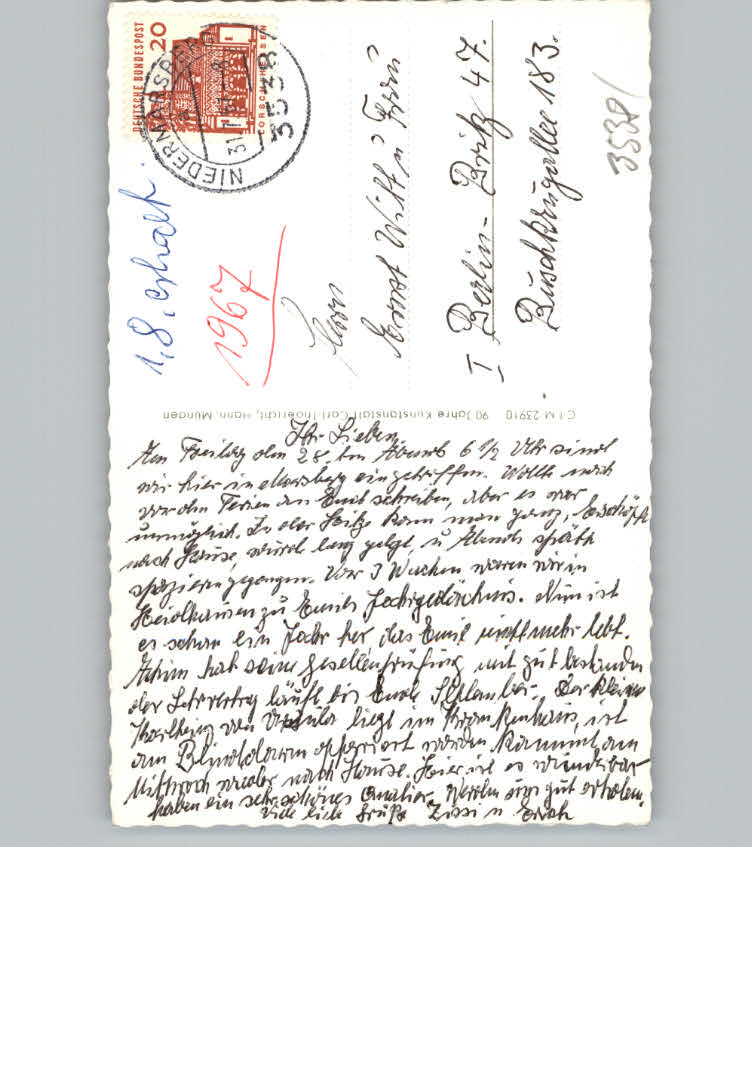 DEUTSCHE BUNDESPOST
20
LORSCH HESSEN
NIEDERMARSBERG
3538
3538/
1.8. erhalt.
1967
Herrn
Ernst Witt u Frau
I Berlin - Britz 47.
Buschkrugallee 183.
C T M 23910 90 Jahre Kunstanstalt Carl Thoericht, Hann. Münden
Ihr Lieben
Am Freitag den 28. ten Abends 6 1/2 Uhr sind
wir hier in Marsberg eingetroffen. Wollte noch
vor den Ferien an Euch schreiben, aber es war
unmöglich. In der Hitze kam man ganz, Erschöpft
nach Hause, wurde lang gelegt, u Abends spät
spazieren gegangen. Vor 3 Wochen waren wir in
Heidhausen zu Emils Jahrgedächnis. Nun ist
es schon ein Jahr her das Emil nicht mehr lebt.
Achim hat seine Gesellenprüfung mit gut bestanden
der Lehrvertrag läuft bis Ende September. Der kleine
Karlheinz von Ursula liegt im Krankenhaus, ist
am Blinddarm operiert worden kommt am
Mittwoch wieder nach Hause. Hier ist es wunderbar
haben ein sehr schönes Quatier. Werden uns gut erholen.
Viele liebe Grüße Zissi u Erich